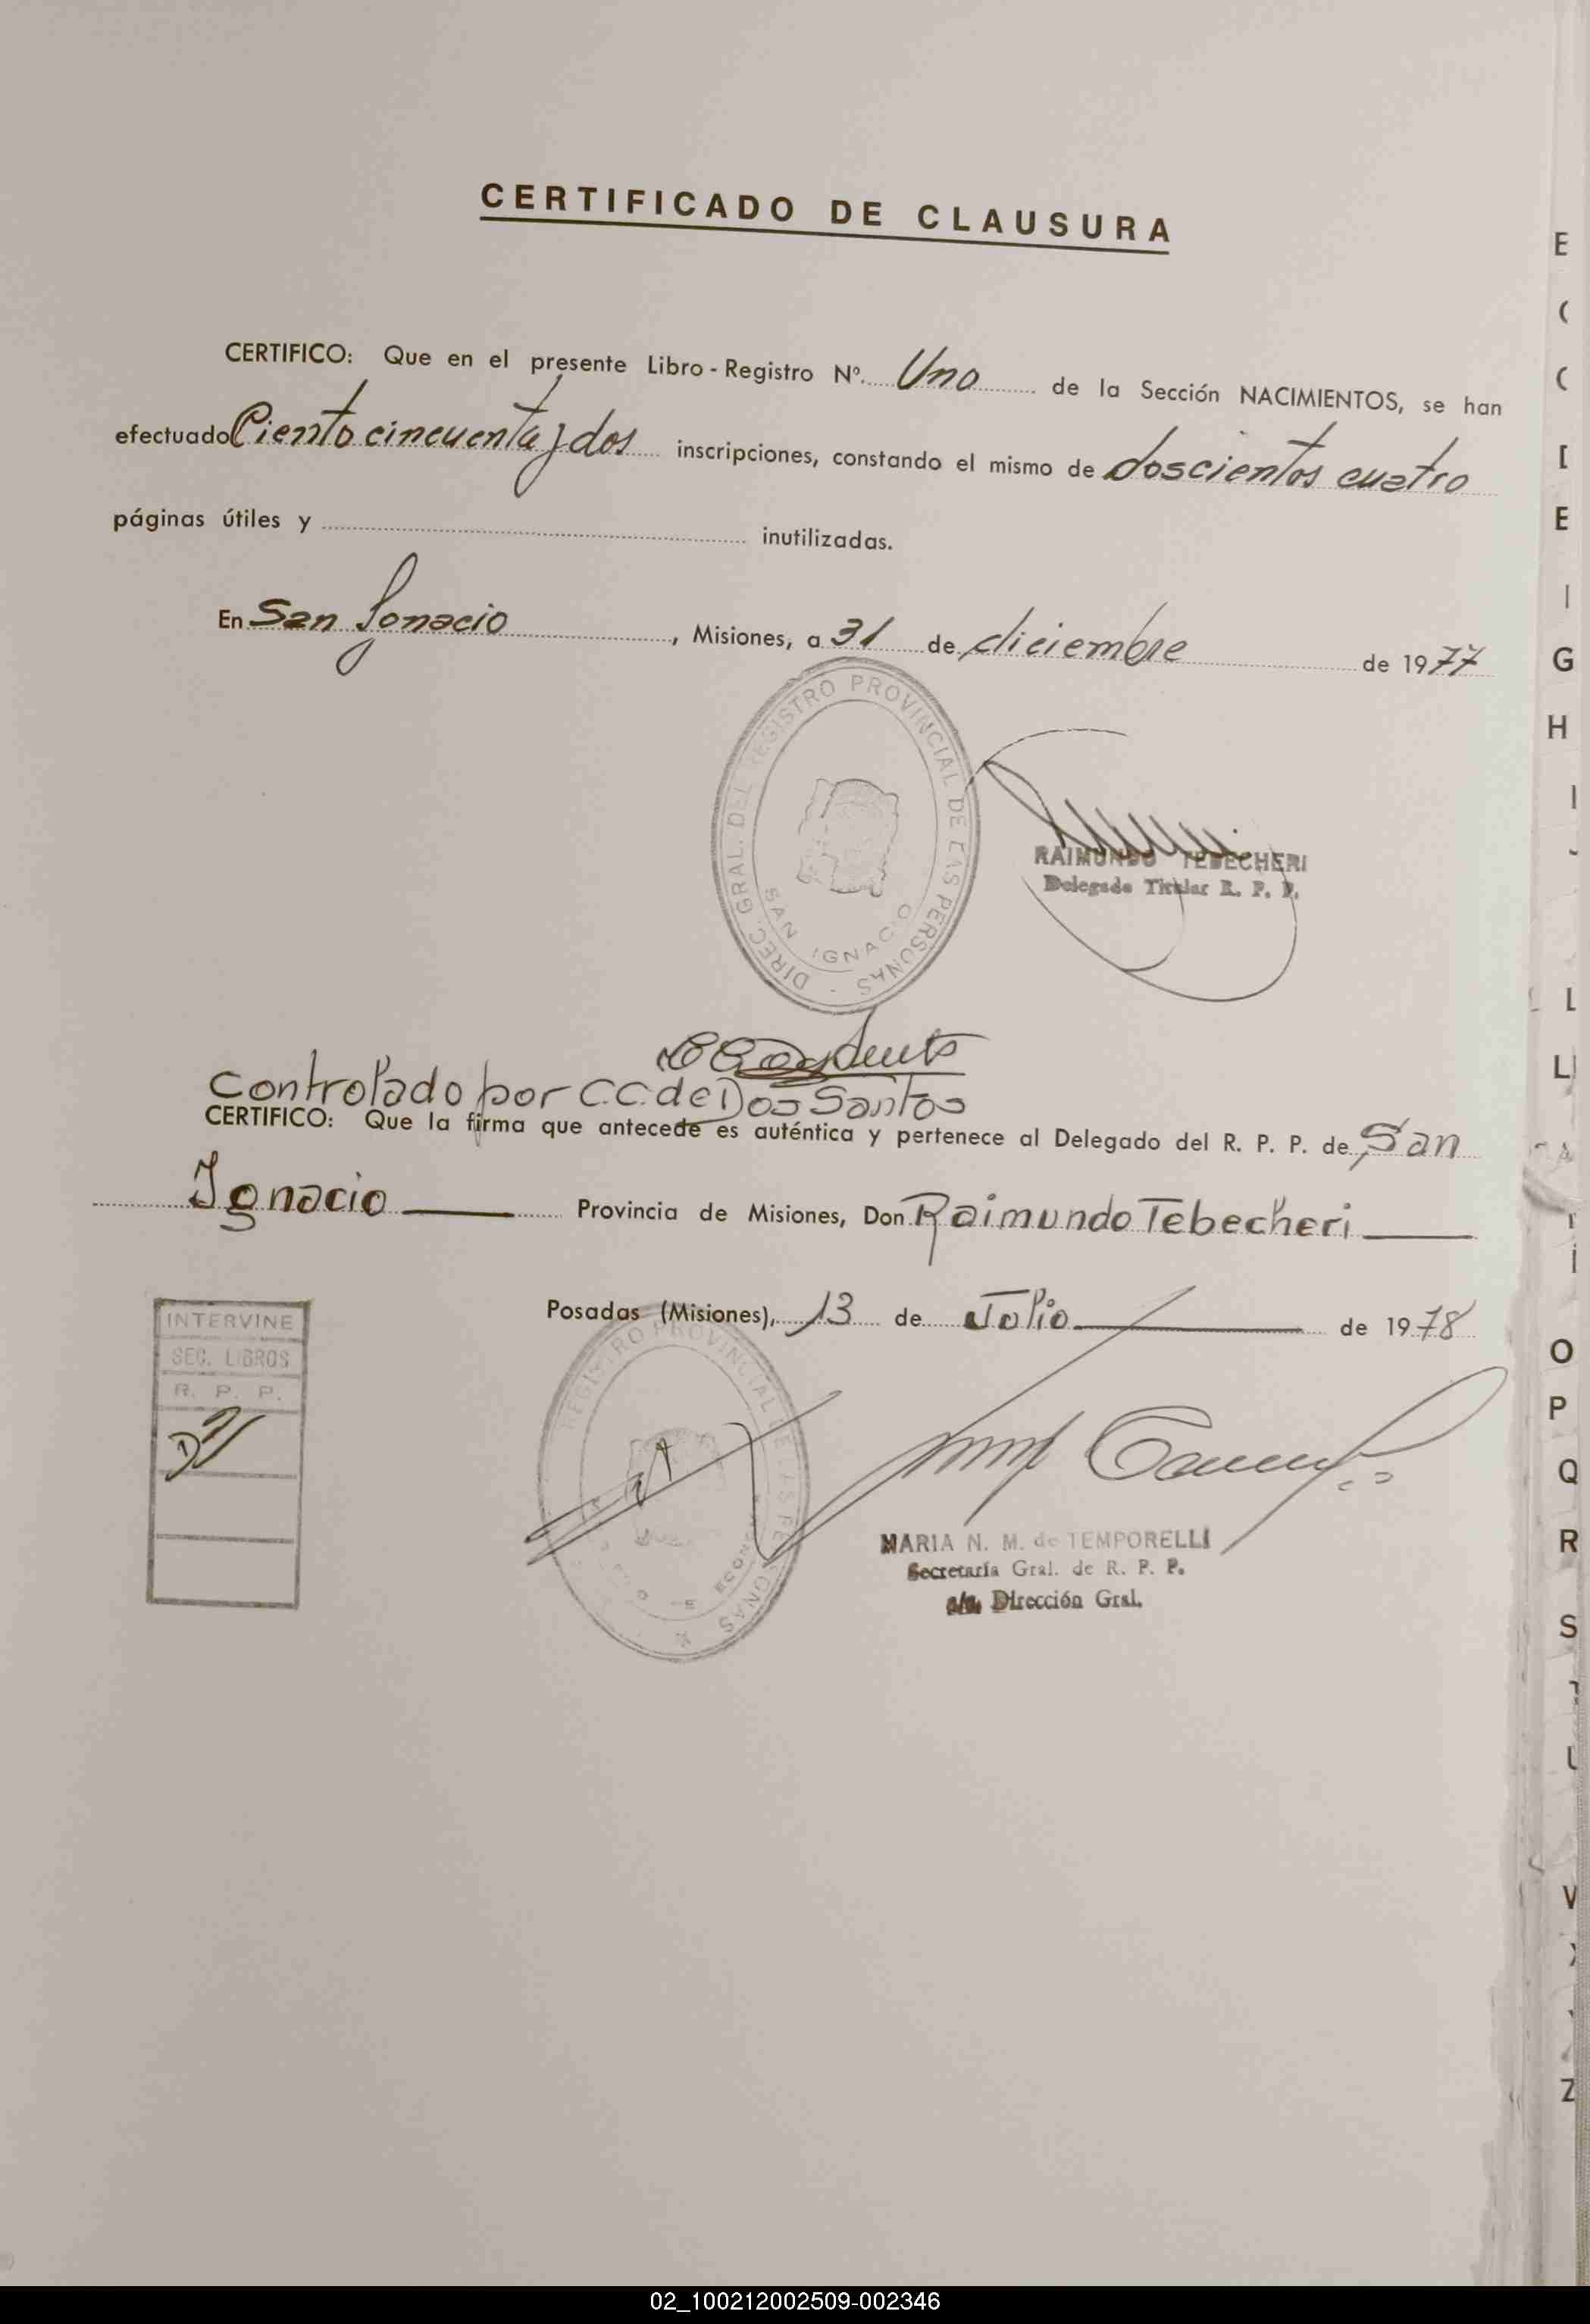 CERTIFICADO DE CLAUSURA
CERTIFICO: Que en el presente Libro - Registro Nº. Uno de la Sección NACIMIENTOS, se han
efectuado Ciento cincuenta y dos inscripciones, constando el mismo de doscientos cuatro
páginas útiles y inutilizadas.
En San Ignacio, Misiones, a 31 de diciembre de 1977
DIREC. GRAL. DEL REGISTRO PROVINCIAL DE LAS PERSONAS -
SAN IGNACIO
RAIMUNDO TEBECHERI
Delegado Titular R. P. P.
Controlado por C.C. de Dos Santos
CERTIFICO: Que la firma que antecede es auténtica y pertenece al Delegado del R. P. P. de San
Ignacio Provincia de Misiones, Don Raimundo Tebecheri
Posadas (Misiones), 13 de Julio de 1978
INTERVINE
SEC. LIBROS
R. P. P.
REGISTRO PROVINCIAL DE LAS PERSONAS
MARIA N. M. de TEMPORELLI
Secretaría Gral. de R. P. P.
a/c. Dirección Gral.
E
D
E
G
H
I
L
LL
O
P
Q
R
S
T
U
V
X
Y
Z
02_100212002509-002346